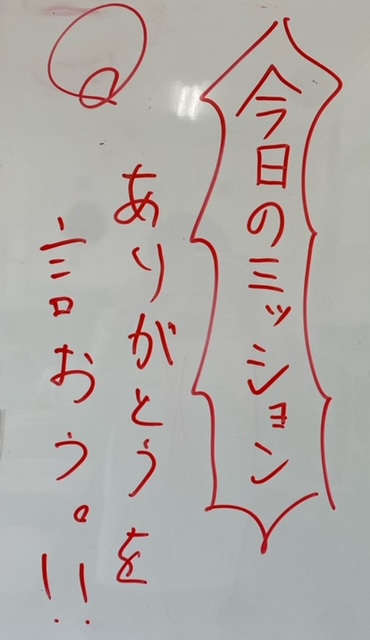 今日のミッション
ありがとうを
言おう。!!